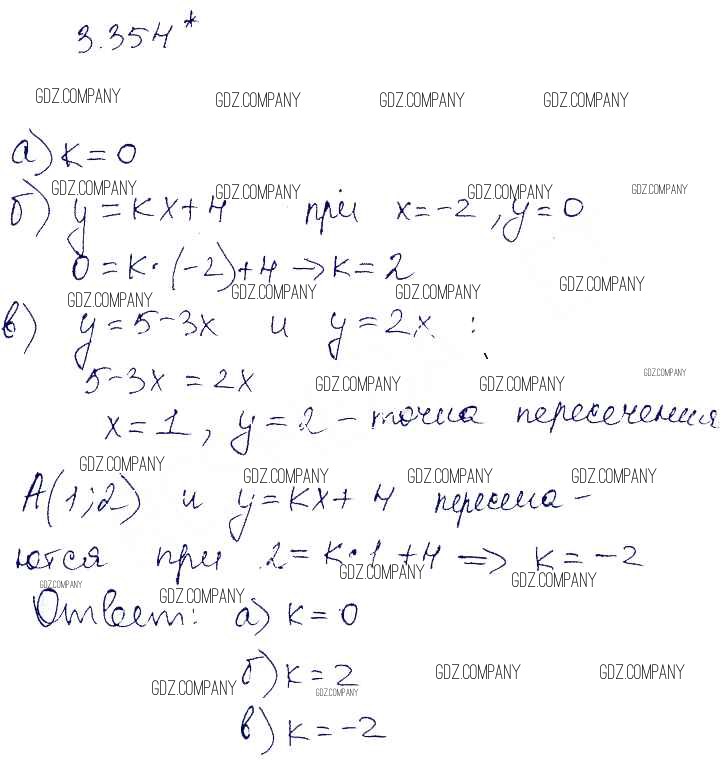 3.354*
GDZ.COMPANY GDZ.COMPANY GDZ.COMPANY GDZ.COMPANY
а) k = 0
GDZ.COMPANY GDZ.COMPANY GDZ.COMPANY GDZ.COMPANY
б) y = kx + 4 при x = -2, y = 0
0 = k · (-2) + 4 → k = 2
GDZ.COMPANY GDZ.COMPANY GDZ.COMPANY GDZ.COMPANY
в) y = 5 - 3x и y = 2x :
5 - 3x = 2x
GDZ.COMPANY GDZ.COMPANY GDZ.COMPANY
x = 1, y = 2 - точка пересечения
GDZ.COMPANY GDZ.COMPANY GDZ.COMPANY GDZ.COMPANY
A(1;2) и y = kx + 4 пересека-
ются при 2 = k · 1 + 4 => k = -2
GDZ.COMPANY GDZ.COMPANY GDZ.COMPANY GDZ.COMPANY
Ответ: а) k = 0
б) k = 2
GDZ.COMPANY GDZ.COMPANY GDZ.COMPANY GDZ.COMPANY
в) k = -2